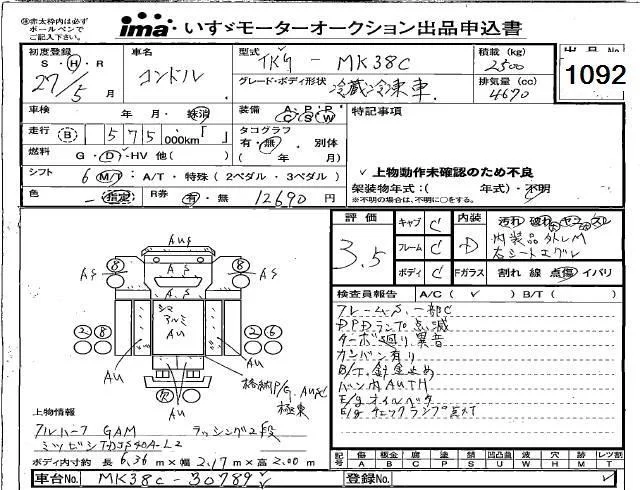 ㊟赤太枠内は必ず
ボールペンで
ご記入下さい。
ima いすゞモーターオークション出品申込書
初度登録 S・H・R 27/5 月
車名 コンドル
型式 TKG - MK38C
積載 (kg) 2500
グレード・ボディ形状 冷蔵冷凍車
排気量 (cc) 4670
出品 No.
1092
車検 年 月・抹消
装備 A・P・P C S W
特記事項
走行 B 575 000km「 」
タコグラフ 有・無・別体 ( 年 月)
燃料 G・D・HV 他( )
シフト 6 M/T・A/T・特殊 (2ペダル・3ペダル)
✓上物動作未確認のため不良
架装物年式:( 年式)・不明
※不明の場合は、不明に○をする。
色 指定
R券 有・無 12690 円
評価 3.5
キャブ C
フレーム C
ボディ C
内装 D
Fガラス 割れ 線 点傷 イバリ
内装品外しM
右シートエグレ
検査員報告 A/C( ✓ ) B/T( )
フレームS、一部C
DPDランプ点滅
ターボ廻り異音
カンバン有り
B/T,針金止め
バン内AUTH
E/gオイルベタ
E/gチェックランプ点灯
AuS
8 8
AS AS
A.S
A.S
シマ
アルミ
AU
2 8 2 6
Au Au
AU
格納P/G,AuSC
極東
欠
上物情報
アルハーフ GAM ラッシング2段
ミツビシTDJS40A-L2
ボディ内寸約 長 6.36 m×幅 2.17 m×高 2.00 m
記号 傷A 板金B 腐C 塗P 錆S 凹凸曲U 波W 穴H 跡M レツ割T
車台No. MK38C-30789
登録No. ✓